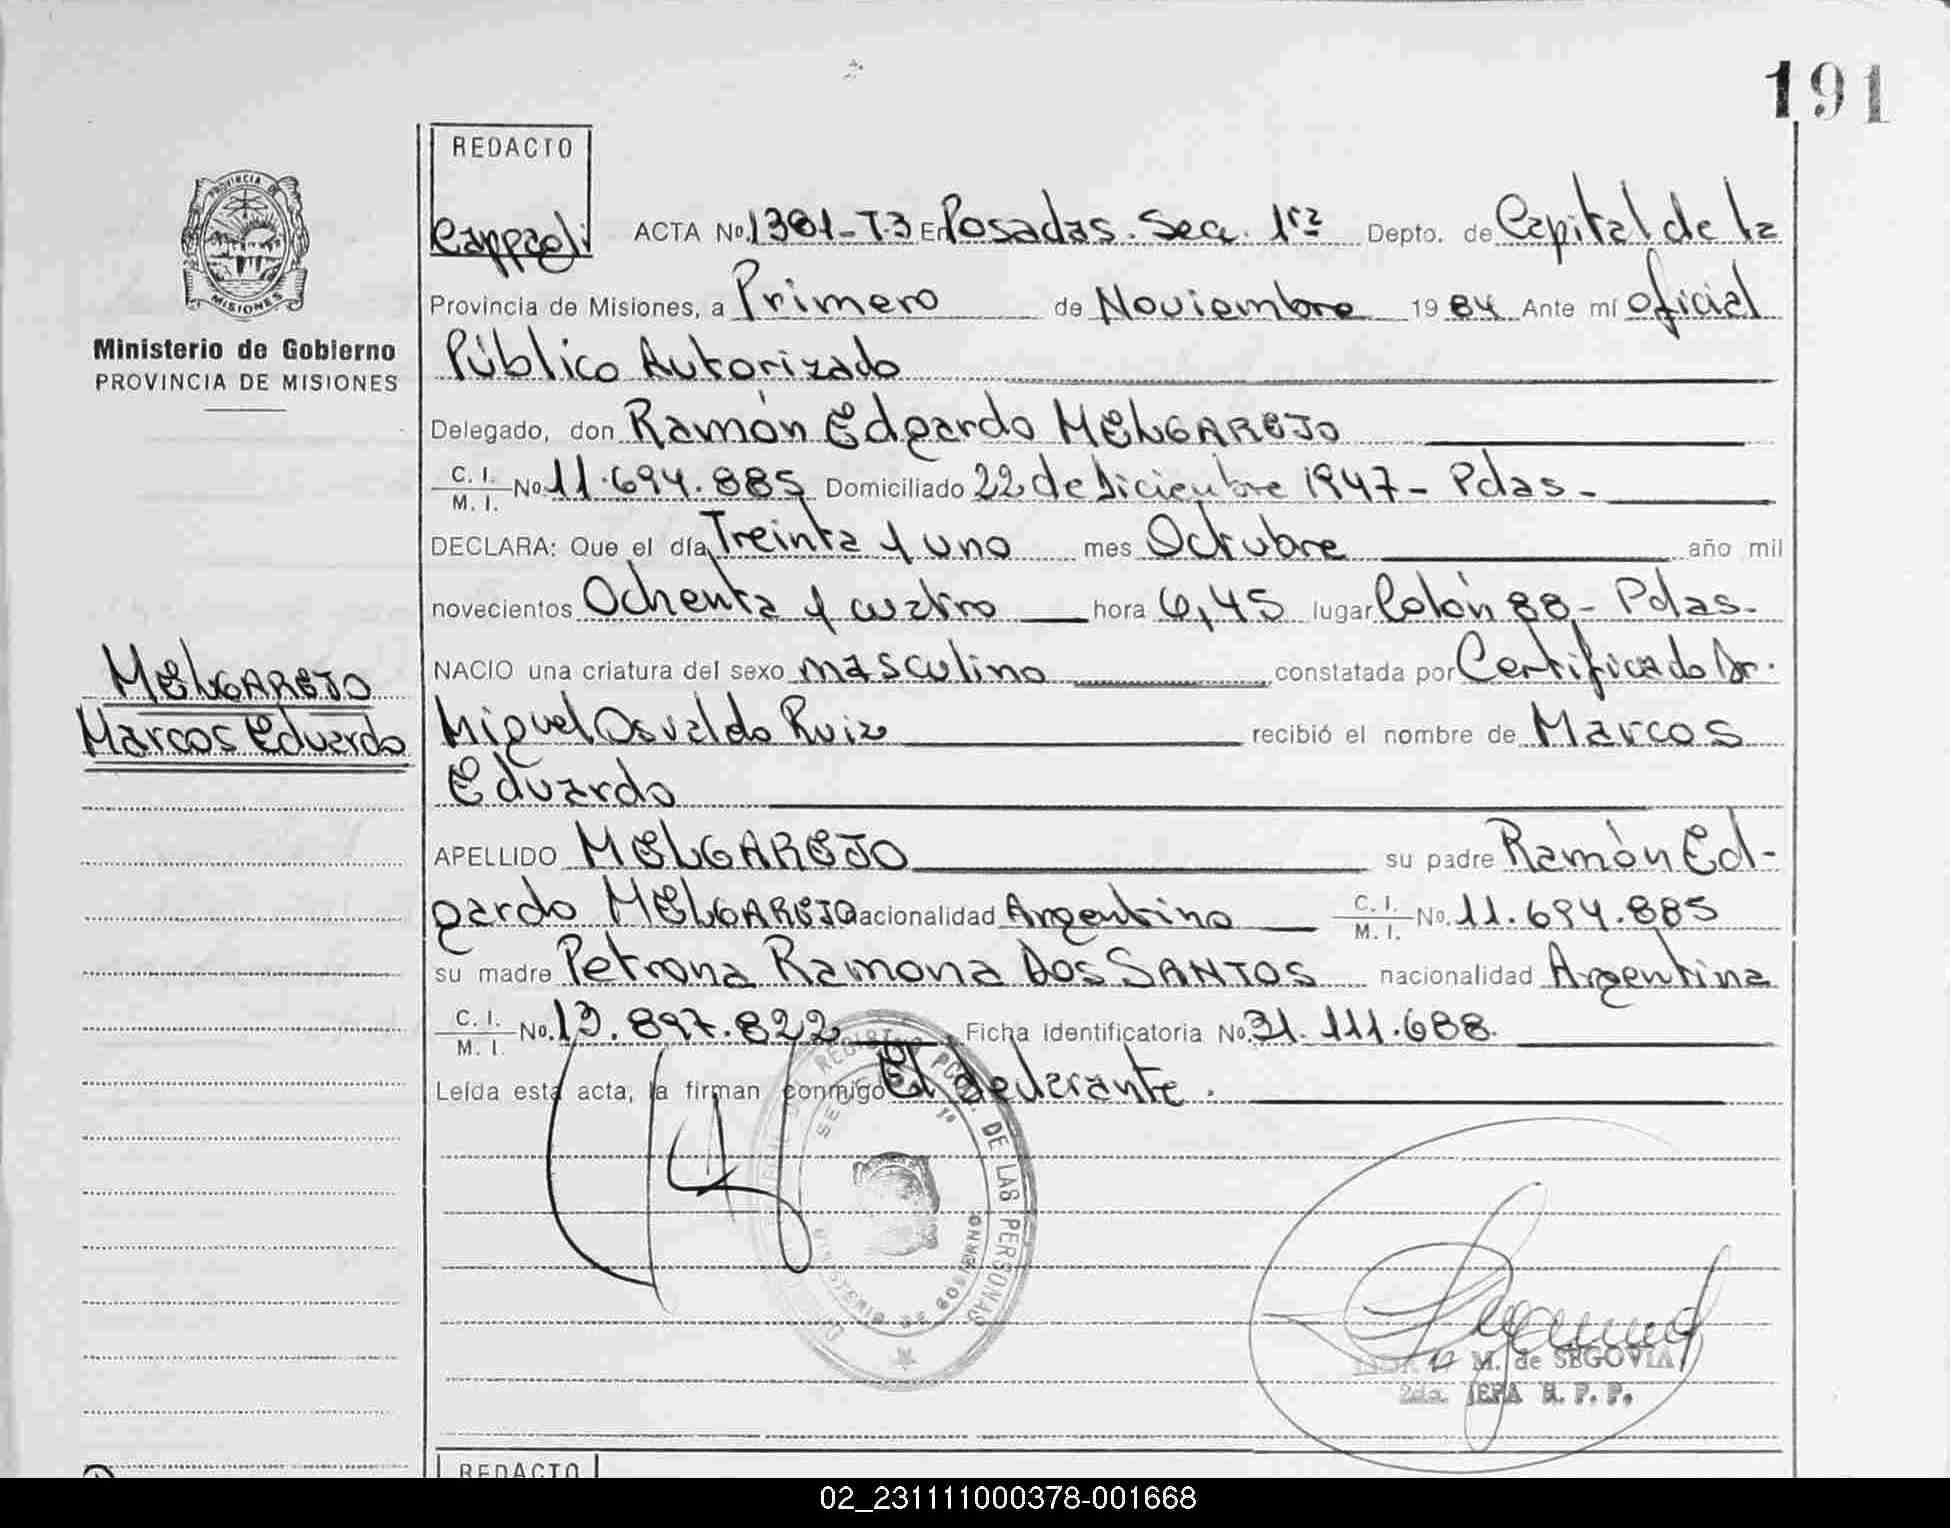 191
REDACTO
Cappaoli ACTA No. 1381-T3 En Posadas. Sec. 1ra Depto. de Capital de la
Provincia de Misiones, a Primero de Noviembre 1984 Ante mí oficial
Público Autorizado
Delegado, don Ramón Edgardo MELGAREJO
C. I. M. I. No. 11.694.885 Domiciliado 22 de Diciembre 1947 - Pdas -
DECLARA: Que el día Treinta y uno mes Octubre año mil
novecientos Ochenta y cuatro hora 6,45 lugar Colón 88 - Pdas -
NACIO una criatura del sexo masculino constatada por Certificado Dr.
Miguel Osvaldo Ruiz recibió el nombre de Marcos
Eduardo
APELLIDO MELGAREJO su padre Ramón Ed-
gardo MELGAREJO nacionalidad Argentino C. I. M. I. No. 11.694.885
su madre Petrona Ramona DOS SANTOS nacionalidad Argentina
C. I. M. I. No. 13.897.822 Ficha identificatoria No. 31.111.688.
Leída esta acta, la firman conmigo El declarante.
PROVINCIA DE
MISIONES
Ministerio de Gobierno
PROVINCIA DE MISIONES
MELGAREJO
Marcos Eduardo
DE LAS PERSONAS
MINISTERIO DE GOBIERNO
M. de SEGOVIA
2da. JEFA R. P. P.
REDACTO
02_231111000378-001668